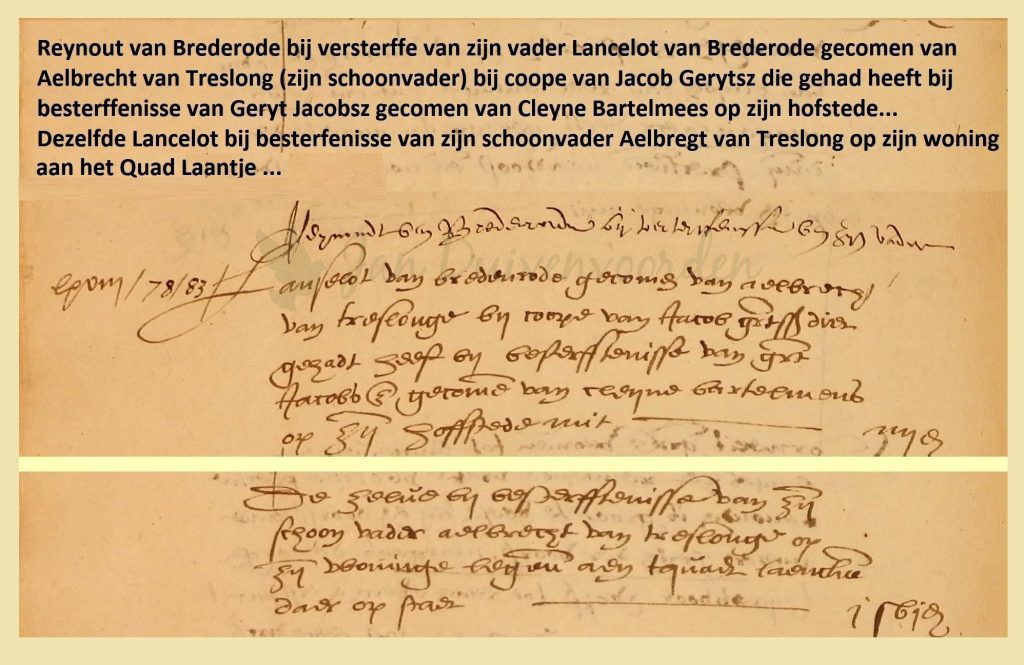 Reynout van Brederode bij versterffe van zijn vader Lancelot van Brederode gecomen van
Aelbrecht van Treslong (zijn schoonvader) bij coope van Jacob Gerytsz die gehad heeft bij
besterffenisse van Geryt Jacobsz gecomen van Cleyne Bartelmees op zijn hofstede...
Dezelfde Lancelot bij besterfenisse van zijn schoonvader Aelbregt van Treslong op zijn woning
aan het Quad Laantje ...
van Brederode bij van zijn vader
Jan Duivenvoorden
/78/83 anselot van brederode gecomen van aelbrecht
van treslonge bij coope van Jacob dier
gehadt heeft bij besterfftenisse van
Jacobs gecome van cleyne bartelmeus
op zijn hoffstede mit
De zelve bij besterfftenisse van zijn
schoon vader aelbrecht van treslonge op
zijn woninge aen tquadt laenthie
daer op staet